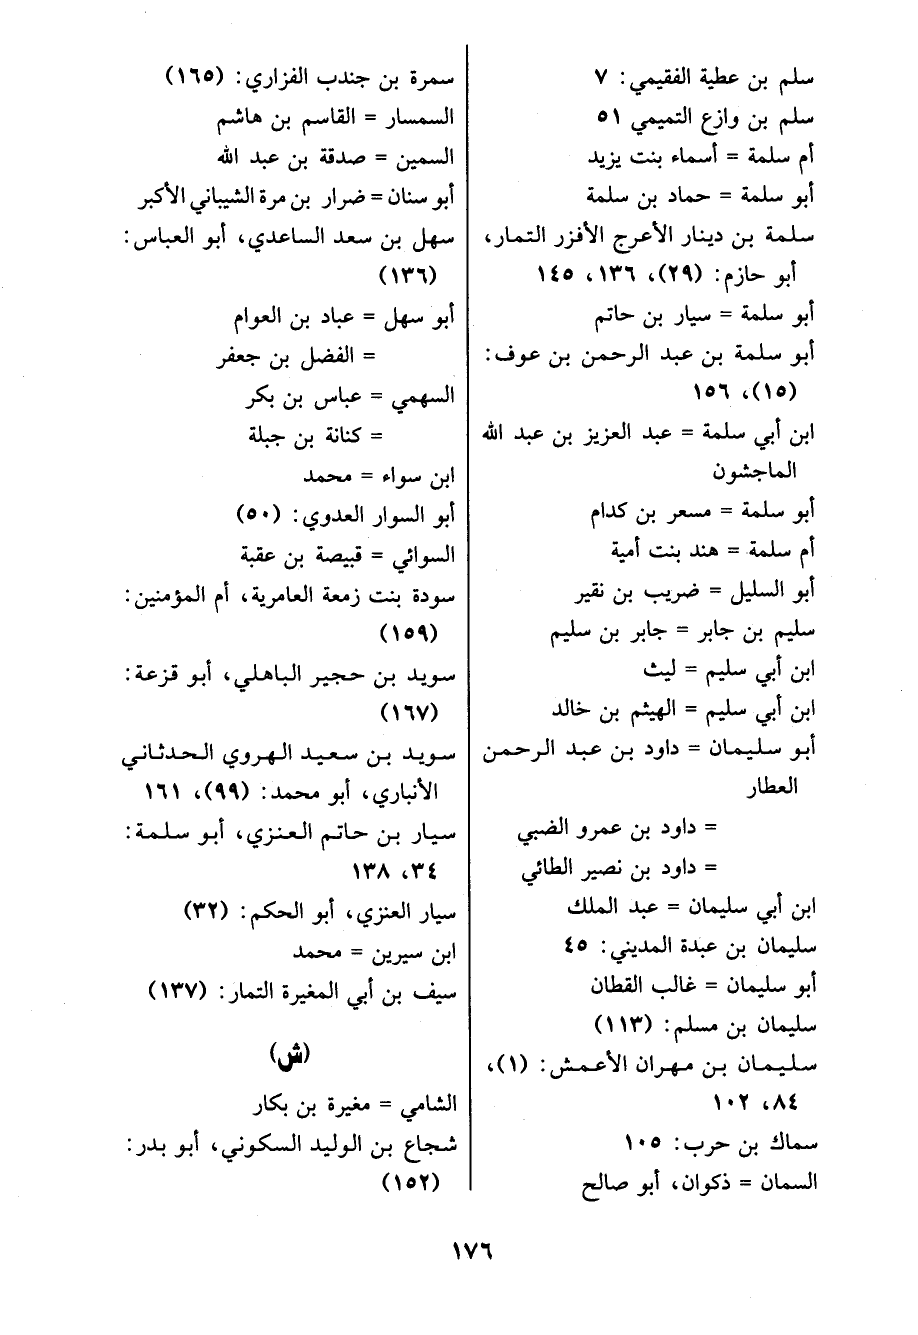 سلم بن عطية الفقيمي: ٧
سلم بن وازع التميمي ٥١
أم سلمة = أسماء بنت يزيد
أبو سلمة = حماد بن سلمة
سلمة بن دينار الأعرج الأفزر التمار،
أبو حازم: (٢٩)، ١٣٦، ١٤٥
أبو سلمة = سيار بن حاتم
أبو سلمة بن عبد الرحمن بن عوف:
(١٥)، ١٥٦
ابن أبي سلمة = عبد العزيز بن عبد الله
الماجشون
أبو سلمة = مسعر بن كدام
أم سلمة = هند بنت أمية
أبو السليل = ضريب بن نقير
سليم بن جابر = جابر بن سليم
ابن أبي سليم = ليث
ابن أبي سليم = الهيثم بن خالد
أبو سليمان = داود بن عبد الرحمن
العطار
= داود بن عمرو الضبي
= داود بن نصير الطائي
ابن أبي سليمان = عبد الملك
سليمان بن عبدة المديني: ٤٥
أبو سليمان = غالب القطان
سليمان بن مسلم: (١١٣)
سليمان بن مهران الأعمش: (١)،
٨٤، ١٠٢
سماك بن حرب: ١٠٥
السمان = ذكوان، أبو صالح
سمرة بن جندب الفزاري: (١٦٥)
السمسار = القاسم بن هاشم
السمين = صدقة بن عبد الله
أبو سنان = ضرار بن مرة الشيباني الأكبر
سهل بن سعد الساعدي، أبو العباس:
(١٣٦)
أبو سهل = عباد بن العوام
= الفضل بن جعفر
السهمي = عباس بن بكر
= كنانة بن جبلة
ابن سواء = محمد
أبو السوار العدوي: (٥٠)
السوائي = قبيصة بن عقبة
سودة بنت زمعة العامرية، أم المؤمنين:
(١٥٩)
سويد بن حجير الباهلي، أبو قزعة:
(١٦٧)
سويد بن سعيد الهروي الحدثاني
الأنباري، أبو محمد: (٩٩)، ١٦١
سيار بن حاتم العنزي، أبو سلمة:
٣٤، ١٣٨
سيار العنزي، أبو الحكم: (٣٢)
ابن سيرين = محمد
سيف بن أبي المغيرة التمار: (١٣٧)
(ش)
الشامي = مغيرة بن بكار
شجاع بن الوليد السكوني، أبو بدر:
(١٥٢)
١٧٦